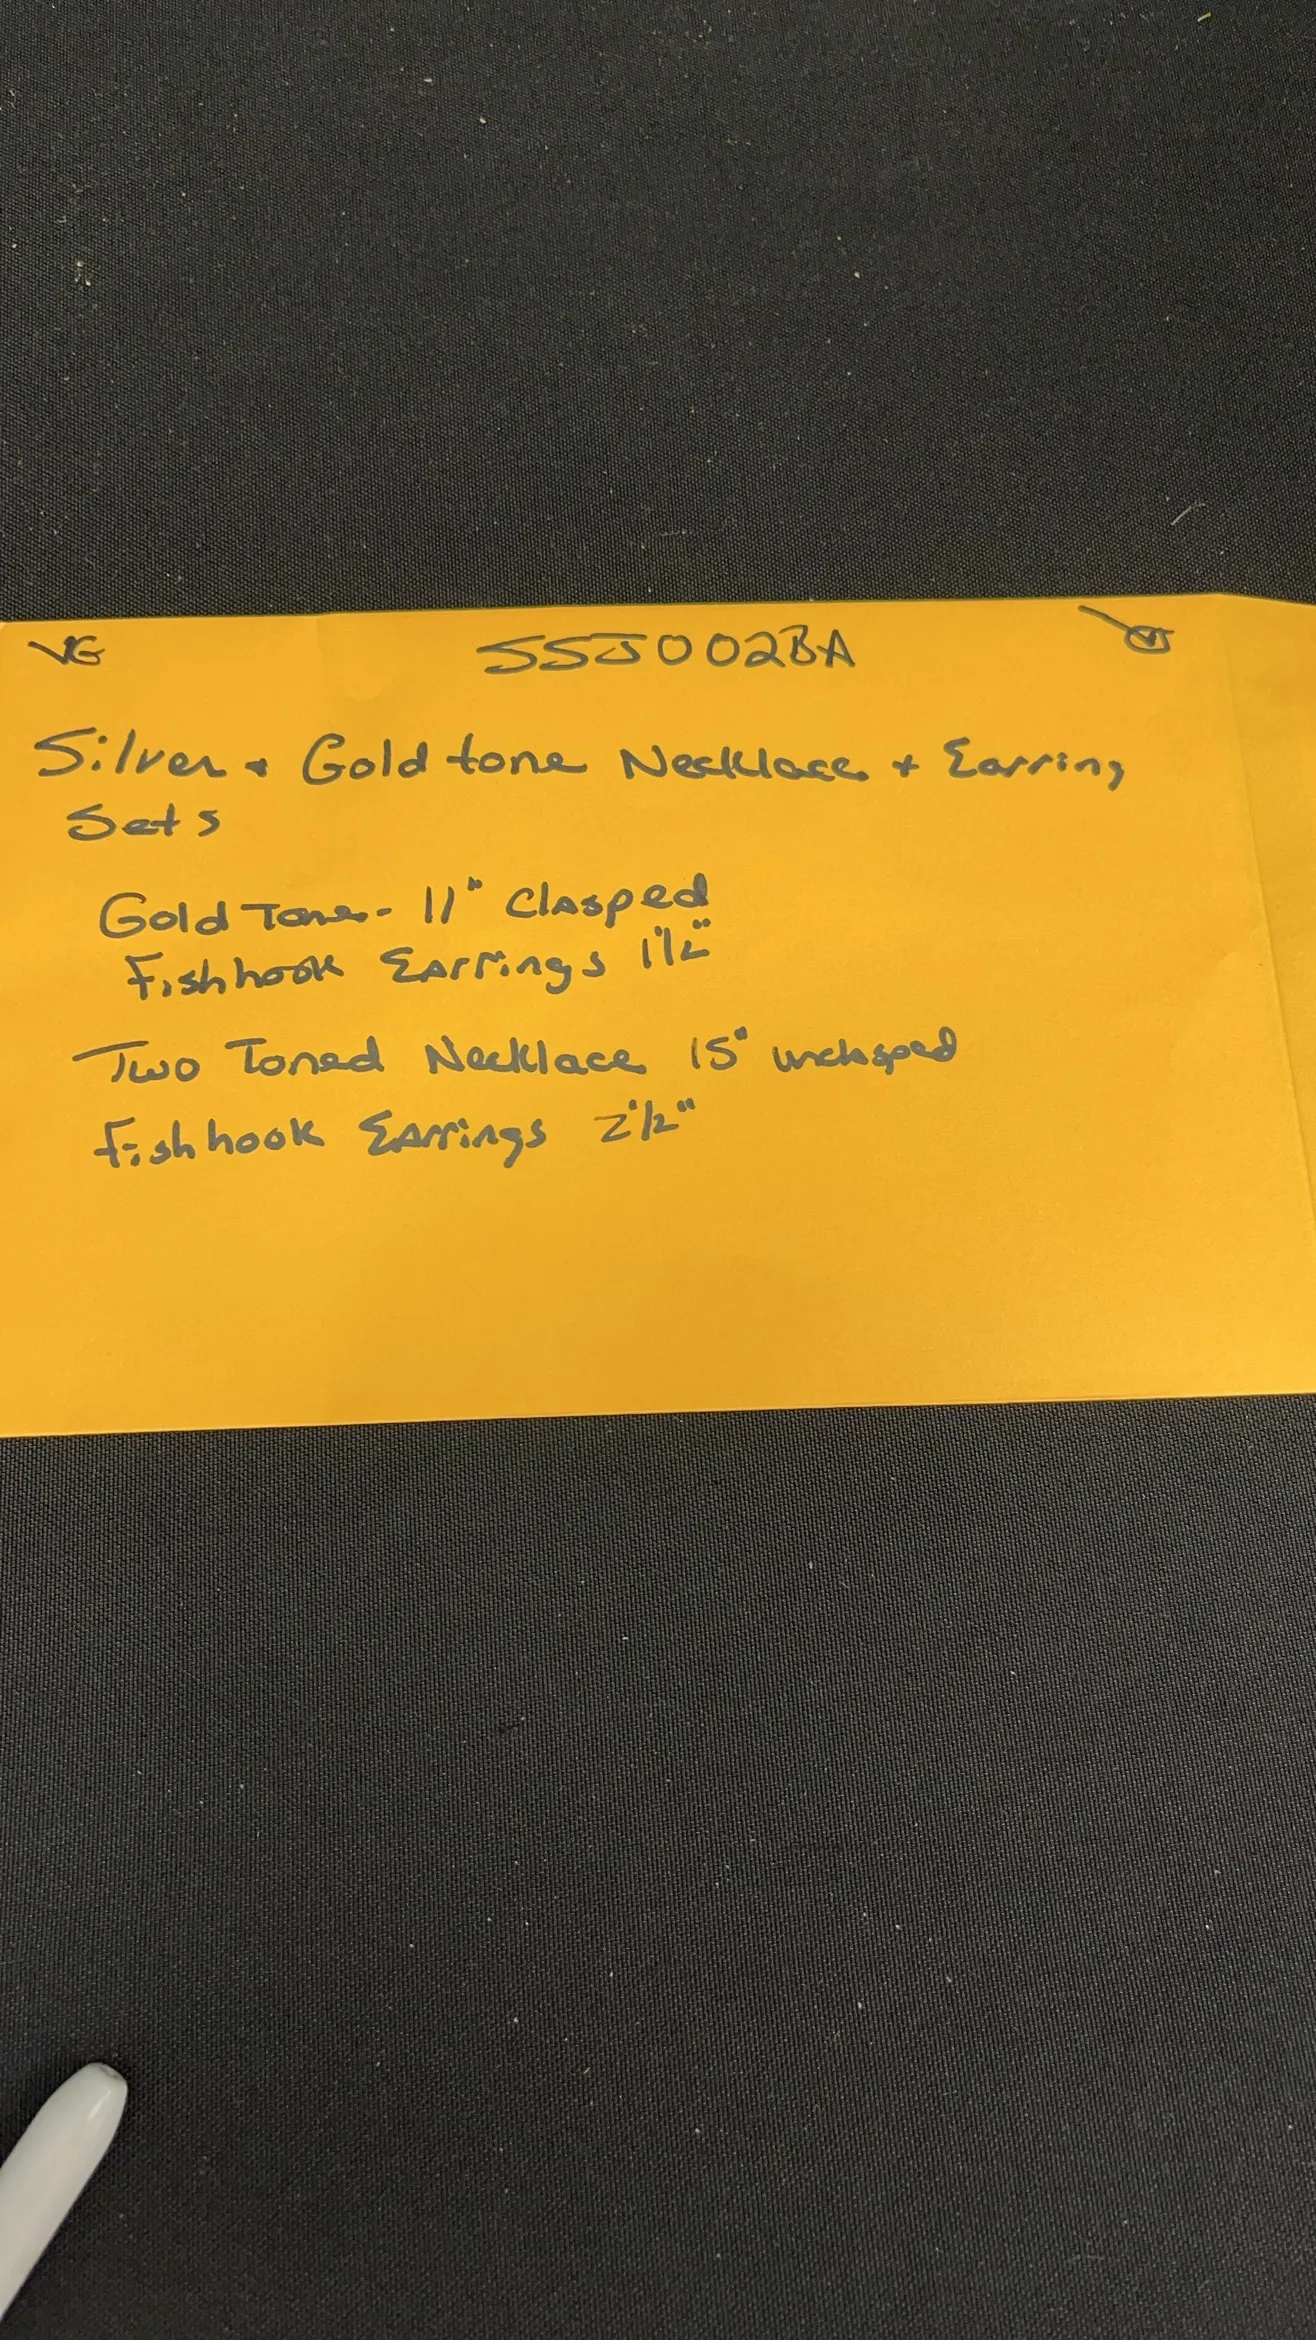 VG
SSJ002BA
Silver + Gold tone Necklace + Earring
Sets
Gold Tone - 11" Clasped
Fishhook Earrings 1 1/2"
Two Toned Necklace 15" unclasped
Fishhook Earrings 2 1/2"